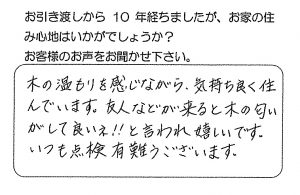 お引き渡しから 10 年経ちましたが、お家の住
み心地はいかがでしょうか？
お客様のお声をお聞かせ下さい。
木の温もりを感じながら、気持ち良く住
んでいます。友人などが来ると木の匂い
がして良いネ!!と言われ嬉しいです。
いつも点検有難うございます。